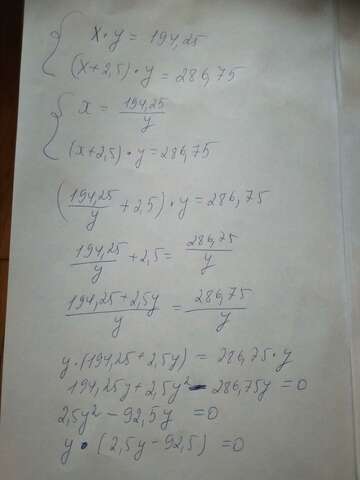 { x · y = 194,25
(x+2,5) · y = 286,75
{ x = 194,25/y
(x+2,5) · y = 286,75
(194,25/y + 2,5) · y = 286,75
194,25/y + 2,5 = 286,75/y
194,25 + 2,5y/y = 286,75/y
y · (194,25 + 2,5y) = 286,75 · y
194,25y + 2,5y² - 286,75y = 0
2,5y² - 92,5y = 0
y · (2,5y - 92,5) = 0